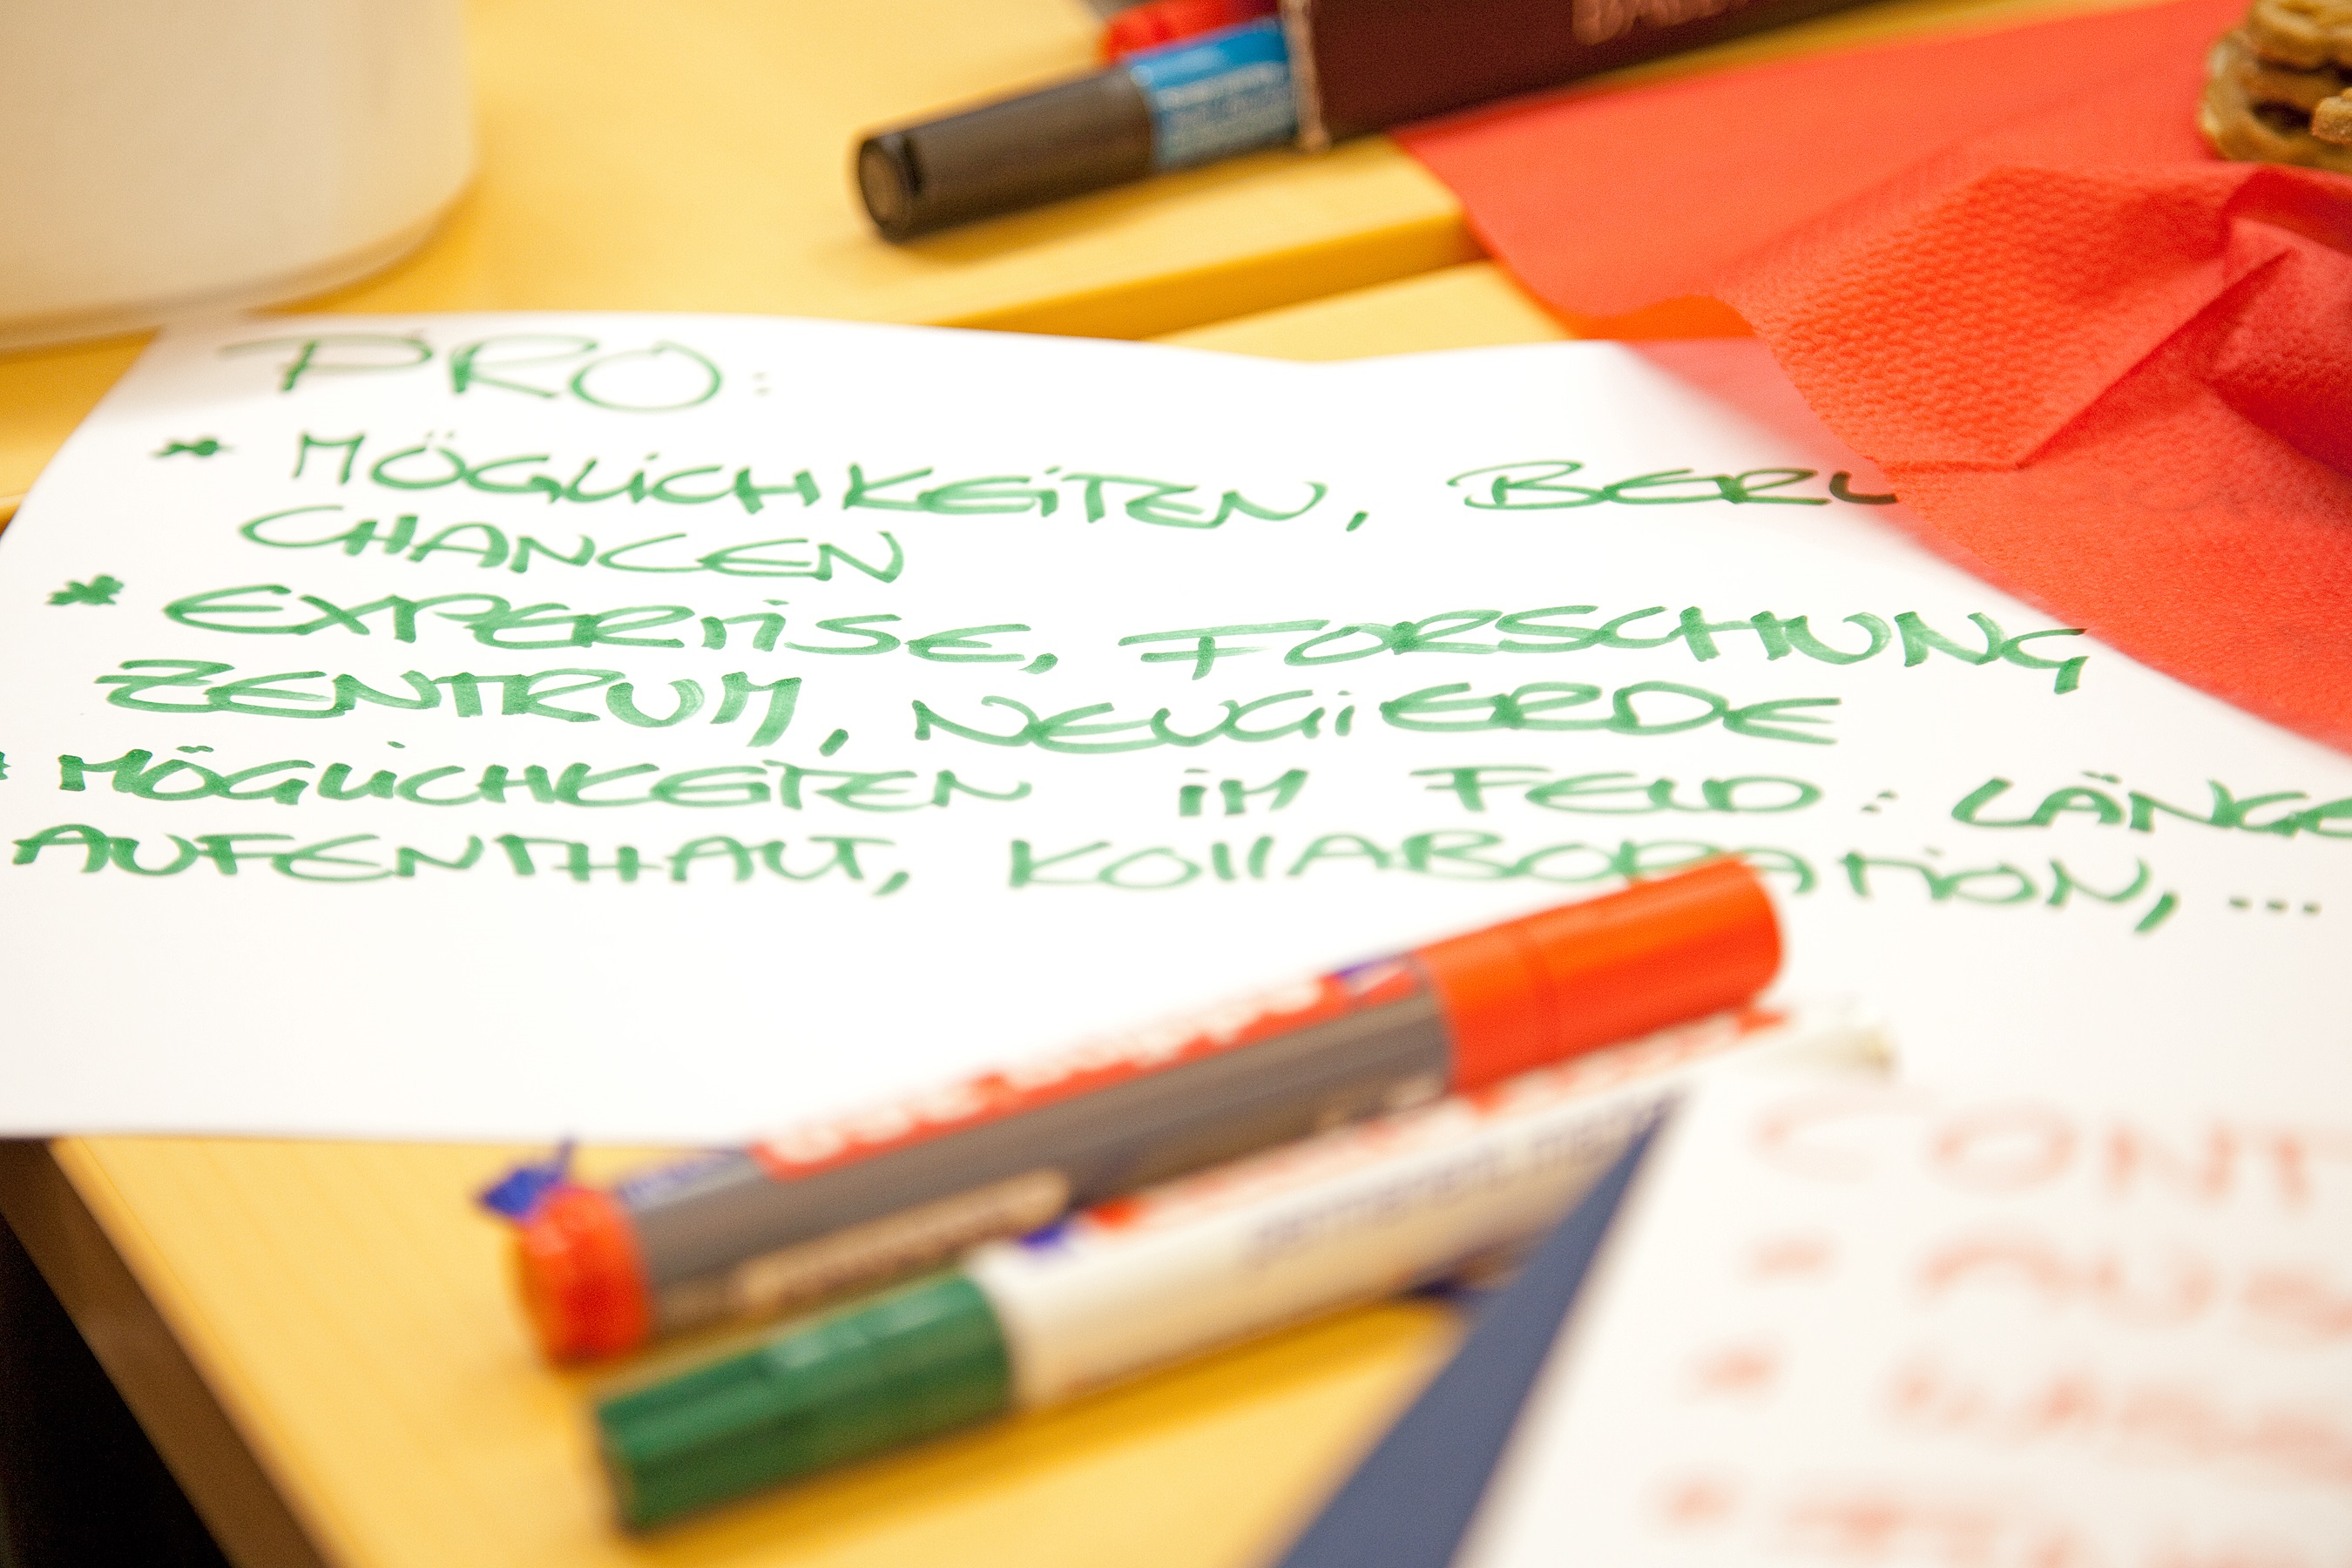 PRO:
* MÖGLICHKEITEN, BERL
CHANCEN
* EXPERTISE, FORSCHUNG
ZENTRUM, NEUGIERDE
* MÖGLICHKEITEN IM FELD: LÄNGE
AUFENTHALT, KOLLABORATION, ...
CONT